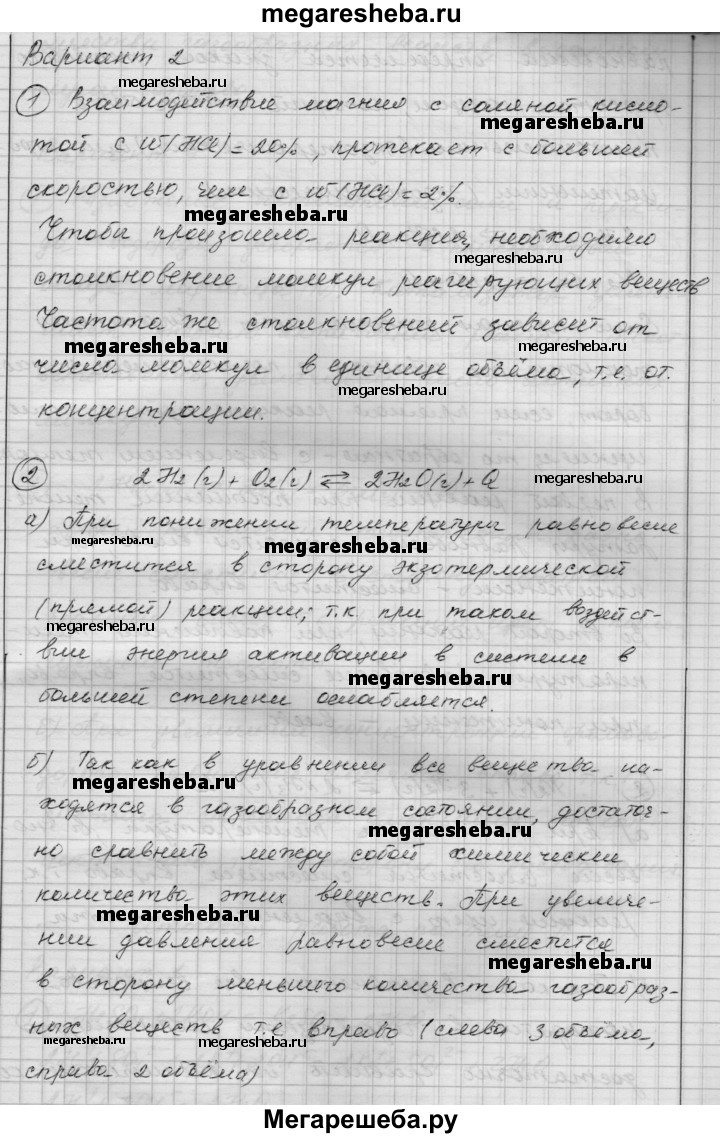 megaresheba.ru
Вариант 2
megaresheba.ru
① Взаимодействие магния с соляной кисло-
megaresheba.ru
той с w(HCl)=20%, протекает с большей
скоростью, чем с w(HCl)=2%.
megaresheba.ru
Чтобы произошла реакция, необходимо
megaresheba.ru
столкновение молекул реагирующих веществ
Частота же столкновений зависит от
megaresheba.ru
числа молекул в единице объёма, т.е. от
megaresheba.ru
концентрации.
② 2H₂(г) + O₂(г) ⇄ 2H₂O(г) + Q
megaresheba.ru
а) При понижении температуры равновесие
megaresheba.ru megaresheba.ru
сместится в сторону экзотермической
(прямой) реакции, т.к. при таком воздейст-
megaresheba.ru
вии энергия активации в системе в
megaresheba.ru
большей степени ослабляется.
б) Так как в уравнении все вещества на-
megaresheba.ru
ходятся в газообразном состоянии, достаточ-
megaresheba.ru
но сравнить между собой химические
количества этих веществ. При увеличе-
megaresheba.ru
нии давления равновесие сместится
megaresheba.ru
в сторону меньшего количества газообраз-
ных веществ т.е вправо (слева 3 объёма,
megaresheba.ru megaresheba.ru
справа 2 объёма)
Мегарешеба.ру